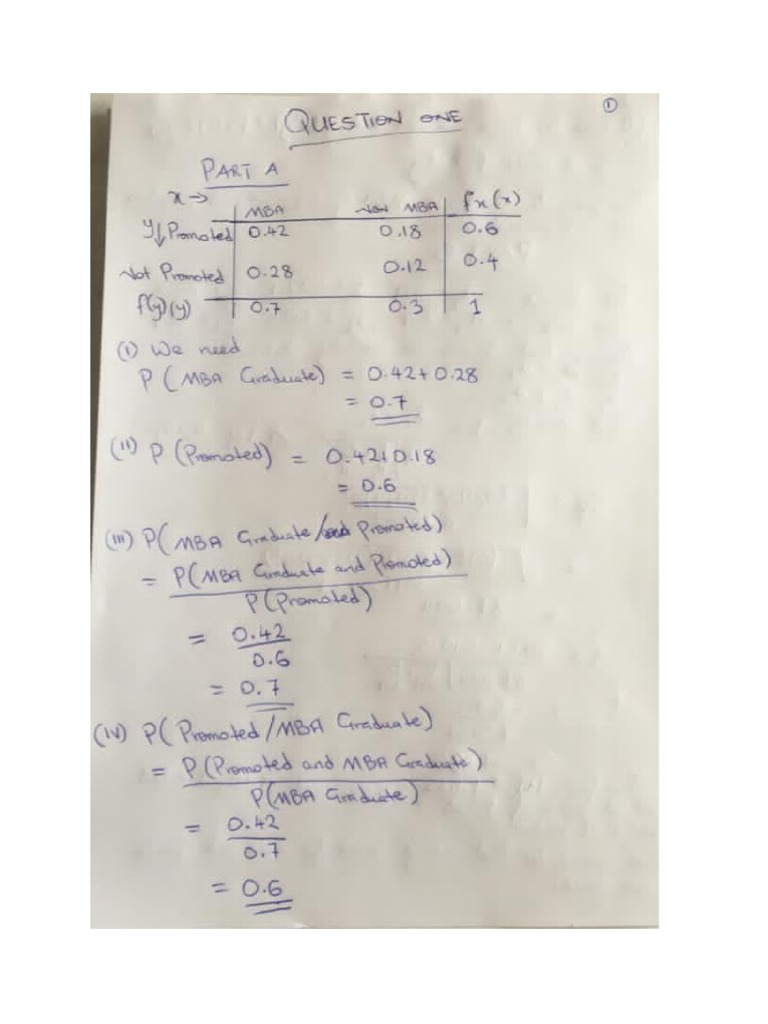 ①
QUESTION ONE
PART A
x →
MBA Not MBA fx(x)
y↓ Promoted 0.42 0.18 0.6
Not Promoted 0.28 0.12 0.4
f(y)(y) 0.7 0.3 1
(i) We need
P(MBA Graduate) = 0.42+0.28
= 0.7
(ii) P(Promoted) = 0.42+0.18
= 0.6
(iii) P(MBA Graduate/ Promoted)
= P(MBA Graduate and Promoted)
P(Promoted)
= 0.42
0.6
= 0.7
(iv) P(Promoted/MBA Graduate)
= P(Promoted and MBA Graduate)
P(MBA Graduate)
= 0.42
0.7
= 0.6